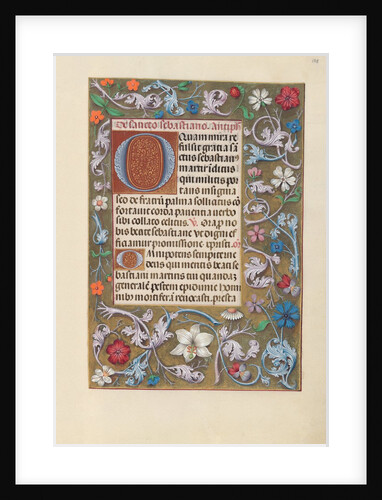 De sancto sebastiano. Antiph
O Quam mira re
fulsit gratia sā
ctus sebastian9
martir inditus
qui militis por
tans insignia
seo de fratrū palma sollicitus cō
fortauit corda pauentia verbo
sibi collato celitus. V. Ora pro no
bis beate sebastiane vt digni ef
ficiamur promissione xpristi. or
Omnipotens sempiterne
deus qui meritis beati se
bastiani martiris tui quandā
generalē pestem epidimie homi
nibus mortiferā reuocasti. presta